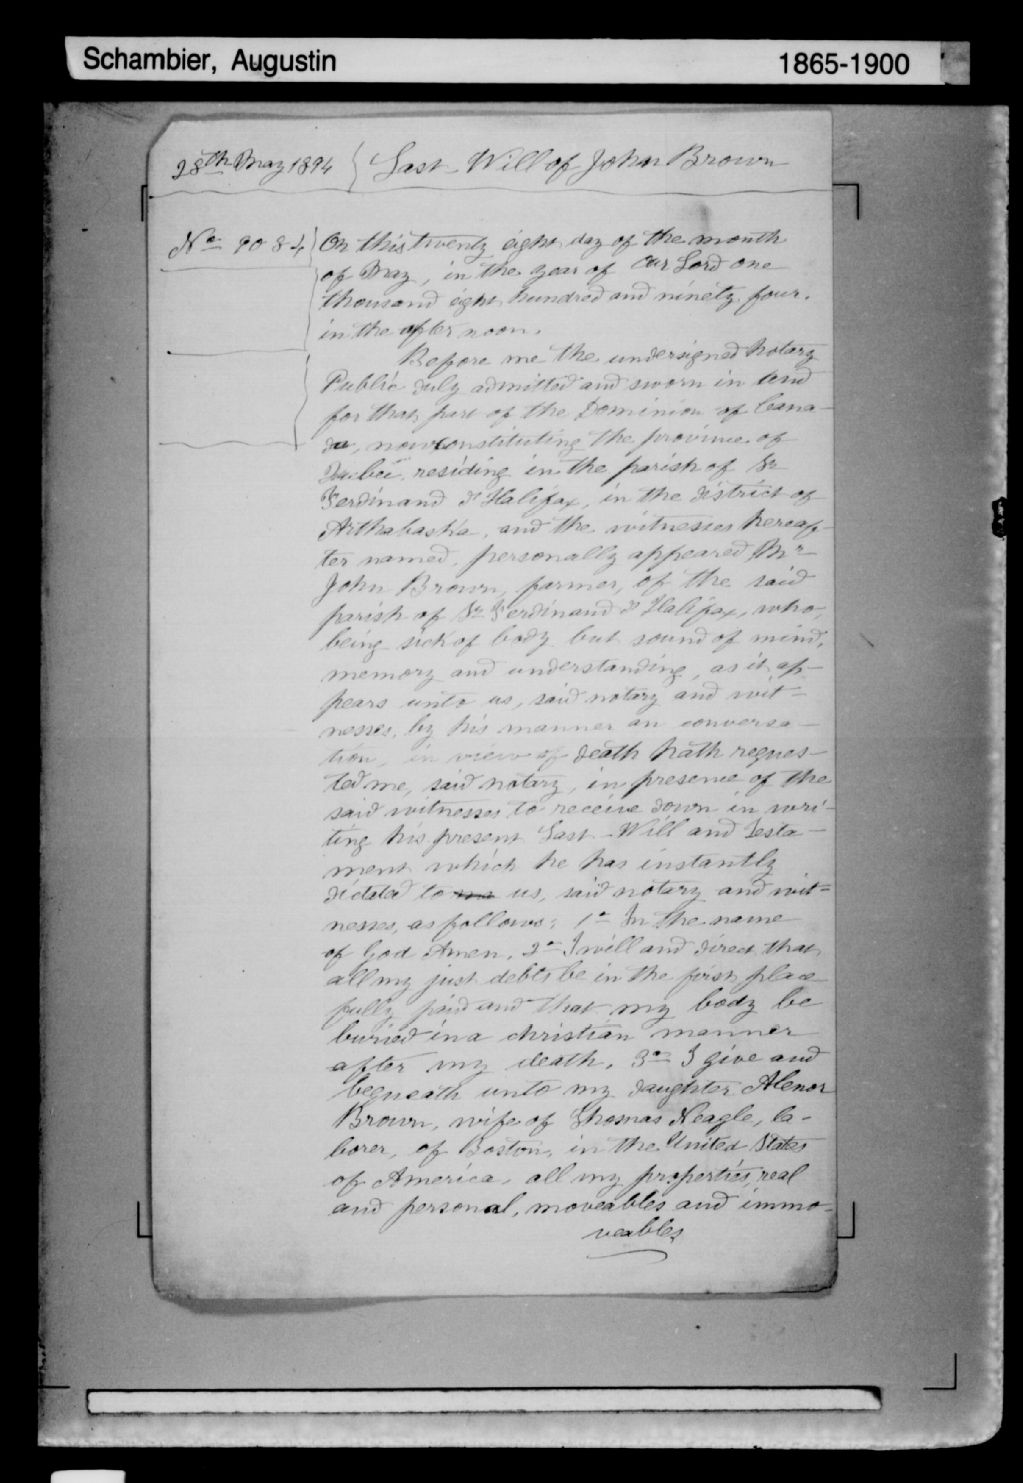 Schambier, Augustin 1865-1900
28th May 1894 Last Will of John Brown
No 9084 On this twenty eight day of the month
of May, in the year of Our Lord one
thousand eight hundred and ninety four.
in the after noon.
Before me the undersigned Notary
Public duly admitted and sworn in and
for that part of the Dominion of Cana-
da, now constituting the province of
Quebec residing in the parish of St
Ferdinand d'Halifax, in the district of
Arthabaska, and the witnesses hereaf-
ter named, personally appeared Mr
John Brown, farmer, of the said
parish of St Ferdinand d'Halifax, who,
being sick of body but sound of mind,
memory and understanding, as it ap-
pears unto us, said notary and wit=
nesses, by his manner an conversa-
tion, in view of death hath reques-
ted me, said notary, in presence of the
said witnesses to receive down in wri-
ting his present Last Will and Testa-
ment which he has instantly
dictated to me us, said notary and wit=
nesses, as follows: 1o In the name
of God Amen. 2o I will and direct that
all my just debts be in the first place
fully paid and that my body be
buried in a christian manner
after my death. 3o I give and
bequeath unto my daughter Alenor
Brown, wife of Thomas Neagle, la-
borer, of Boston, in the United States
of America, all my properties, real
and personal, moveables and immo-
veables